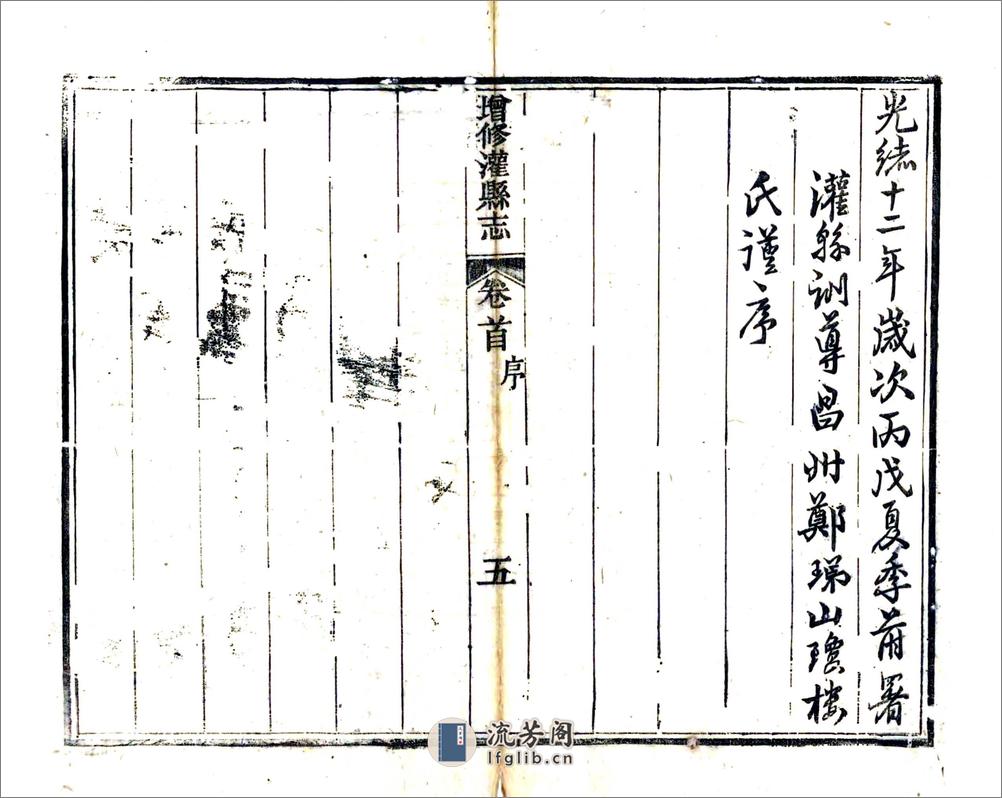 光緒十二年歲次丙戌夏季前署
灌縣訓導昌州鄭珶山瓊樓
氏謹序
增修灌縣志
卷首
序
五
流芳阁
lfglib.cn